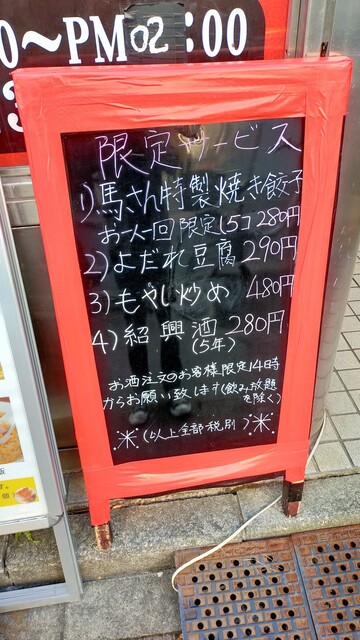 0〜PM02:00
限定サービス
1)馬さん特製焼き餃子
お一人一回限定(5コ280円
2)よだれ豆腐290円
3)もやし炒め 480円
4)紹興酒280円
(5年)
お酒注文のお客様限定14時
からお願い致します(飲み放題
を除く)
※(以上全部税別)※
飯
す。
個